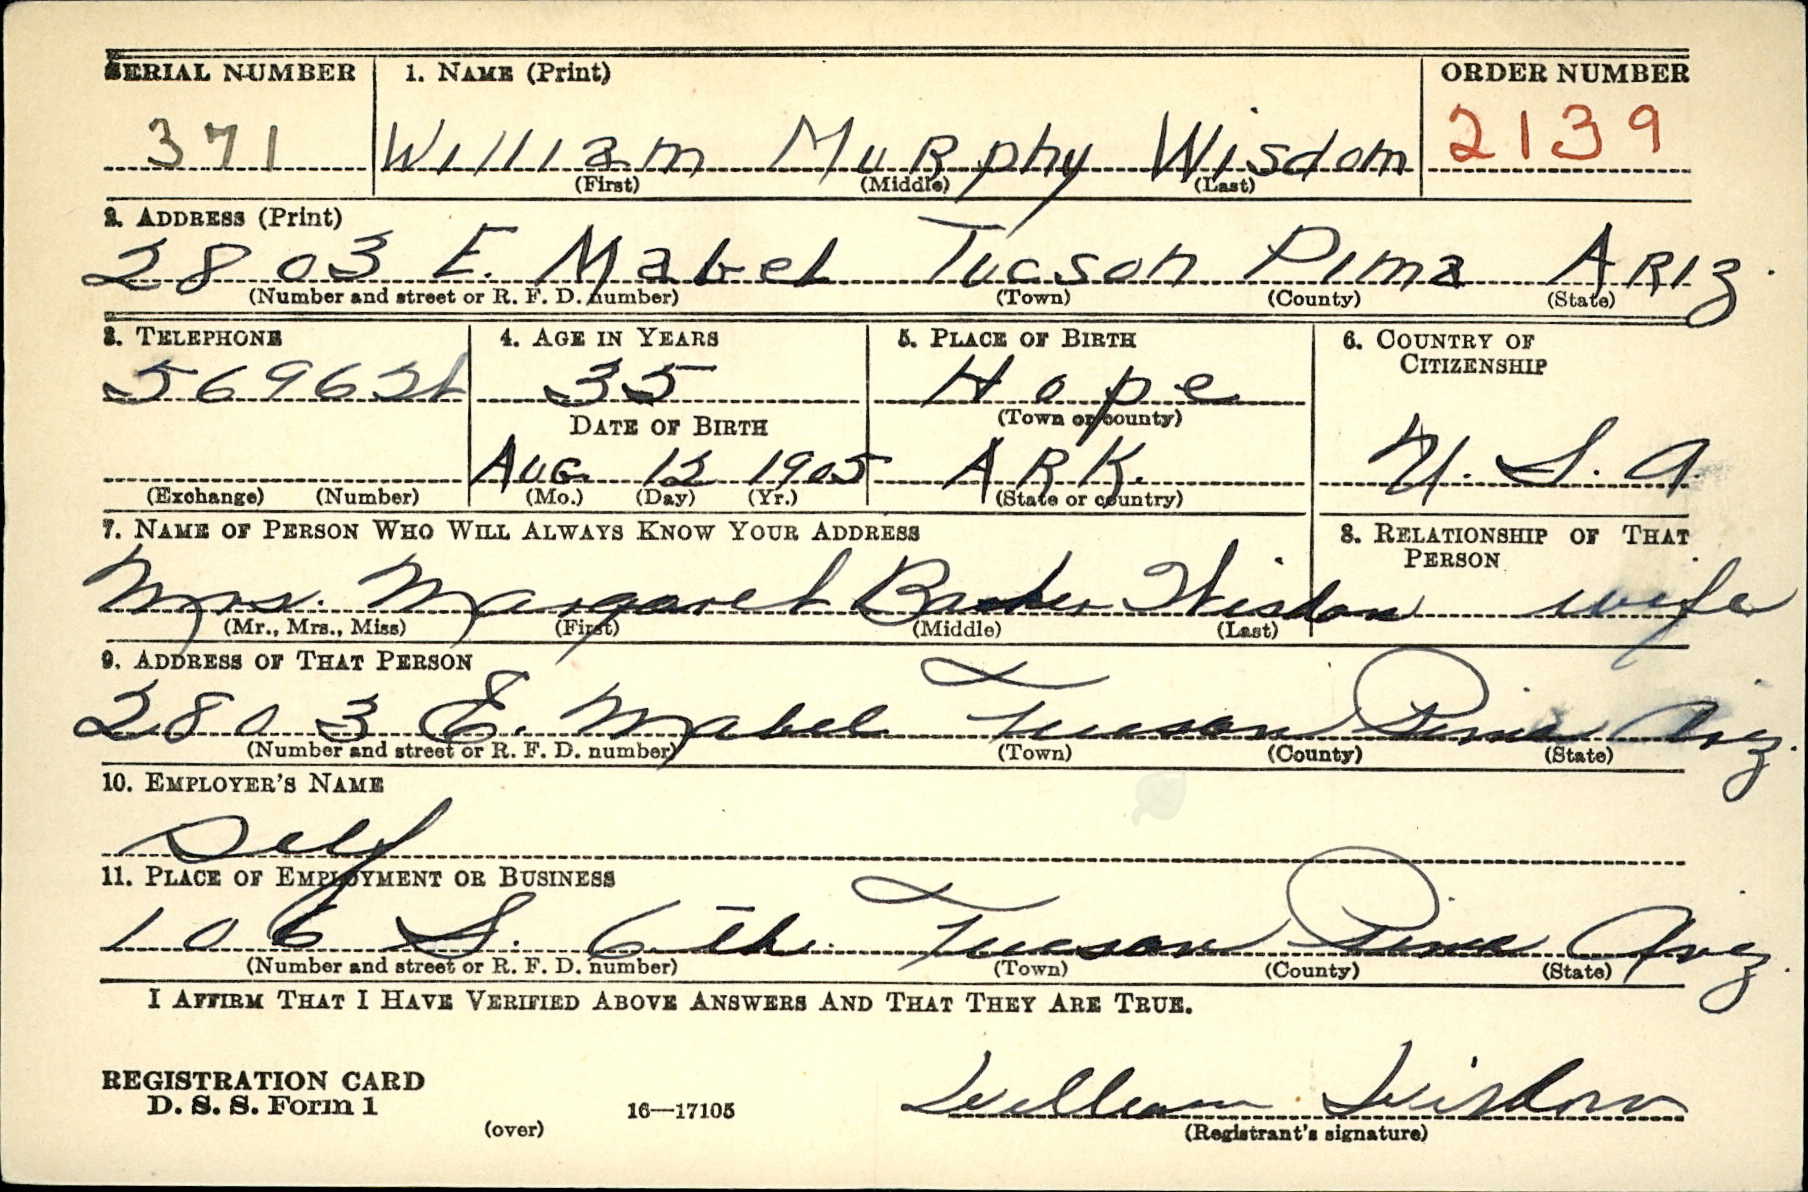 SERIAL NUMBER 1. NAME (Print) ORDER NUMBER
371 William Murphy Wisdom 2139
(First) (Middle) (Last)
2. ADDRESS (Print)
2803 E. Mabel Tucson Pima ARIZ.
(Number and street or R. F. D. number) (Town) (County) (State)
3. TELEPHONE 4. AGE IN YEARS 5. PLACE OF BIRTH 6. COUNTRY OF CITIZENSHIP
35 Hope
(Town or county)
DATE OF BIRTH
AUG. 12 1905 ARK. U. S. A.
(Exchange) (Number) (Mo.) (Day) (Yr.) (State or country)
7. NAME OF PERSON WHO WILL ALWAYS KNOW YOUR ADDRESS 8. RELATIONSHIP OF THAT PERSON
Mrs. Margaret Wisdom wife
(Mr., Mrs., Miss) (First) (Middle) (Last)
9. ADDRESS OF THAT PERSON
2803 E. Mabel Tucson Pima Ariz.
(Number and street or R. F. D. number) (Town) (County) (State)
10. EMPLOYER'S NAME
Self
11. PLACE OF EMPLOYMENT OR BUSINESS
106 S. 6th. Tucson Pima Ariz.
(Number and street or R. F. D. number) (Town) (County) (State)
I AFFIRM THAT I HAVE VERIFIED ABOVE ANSWERS AND THAT THEY ARE TRUE.
REGISTRATION CARD
D. S. S. Form 1
(over) 16—17105
William Wisdom
(Registrant's signature)